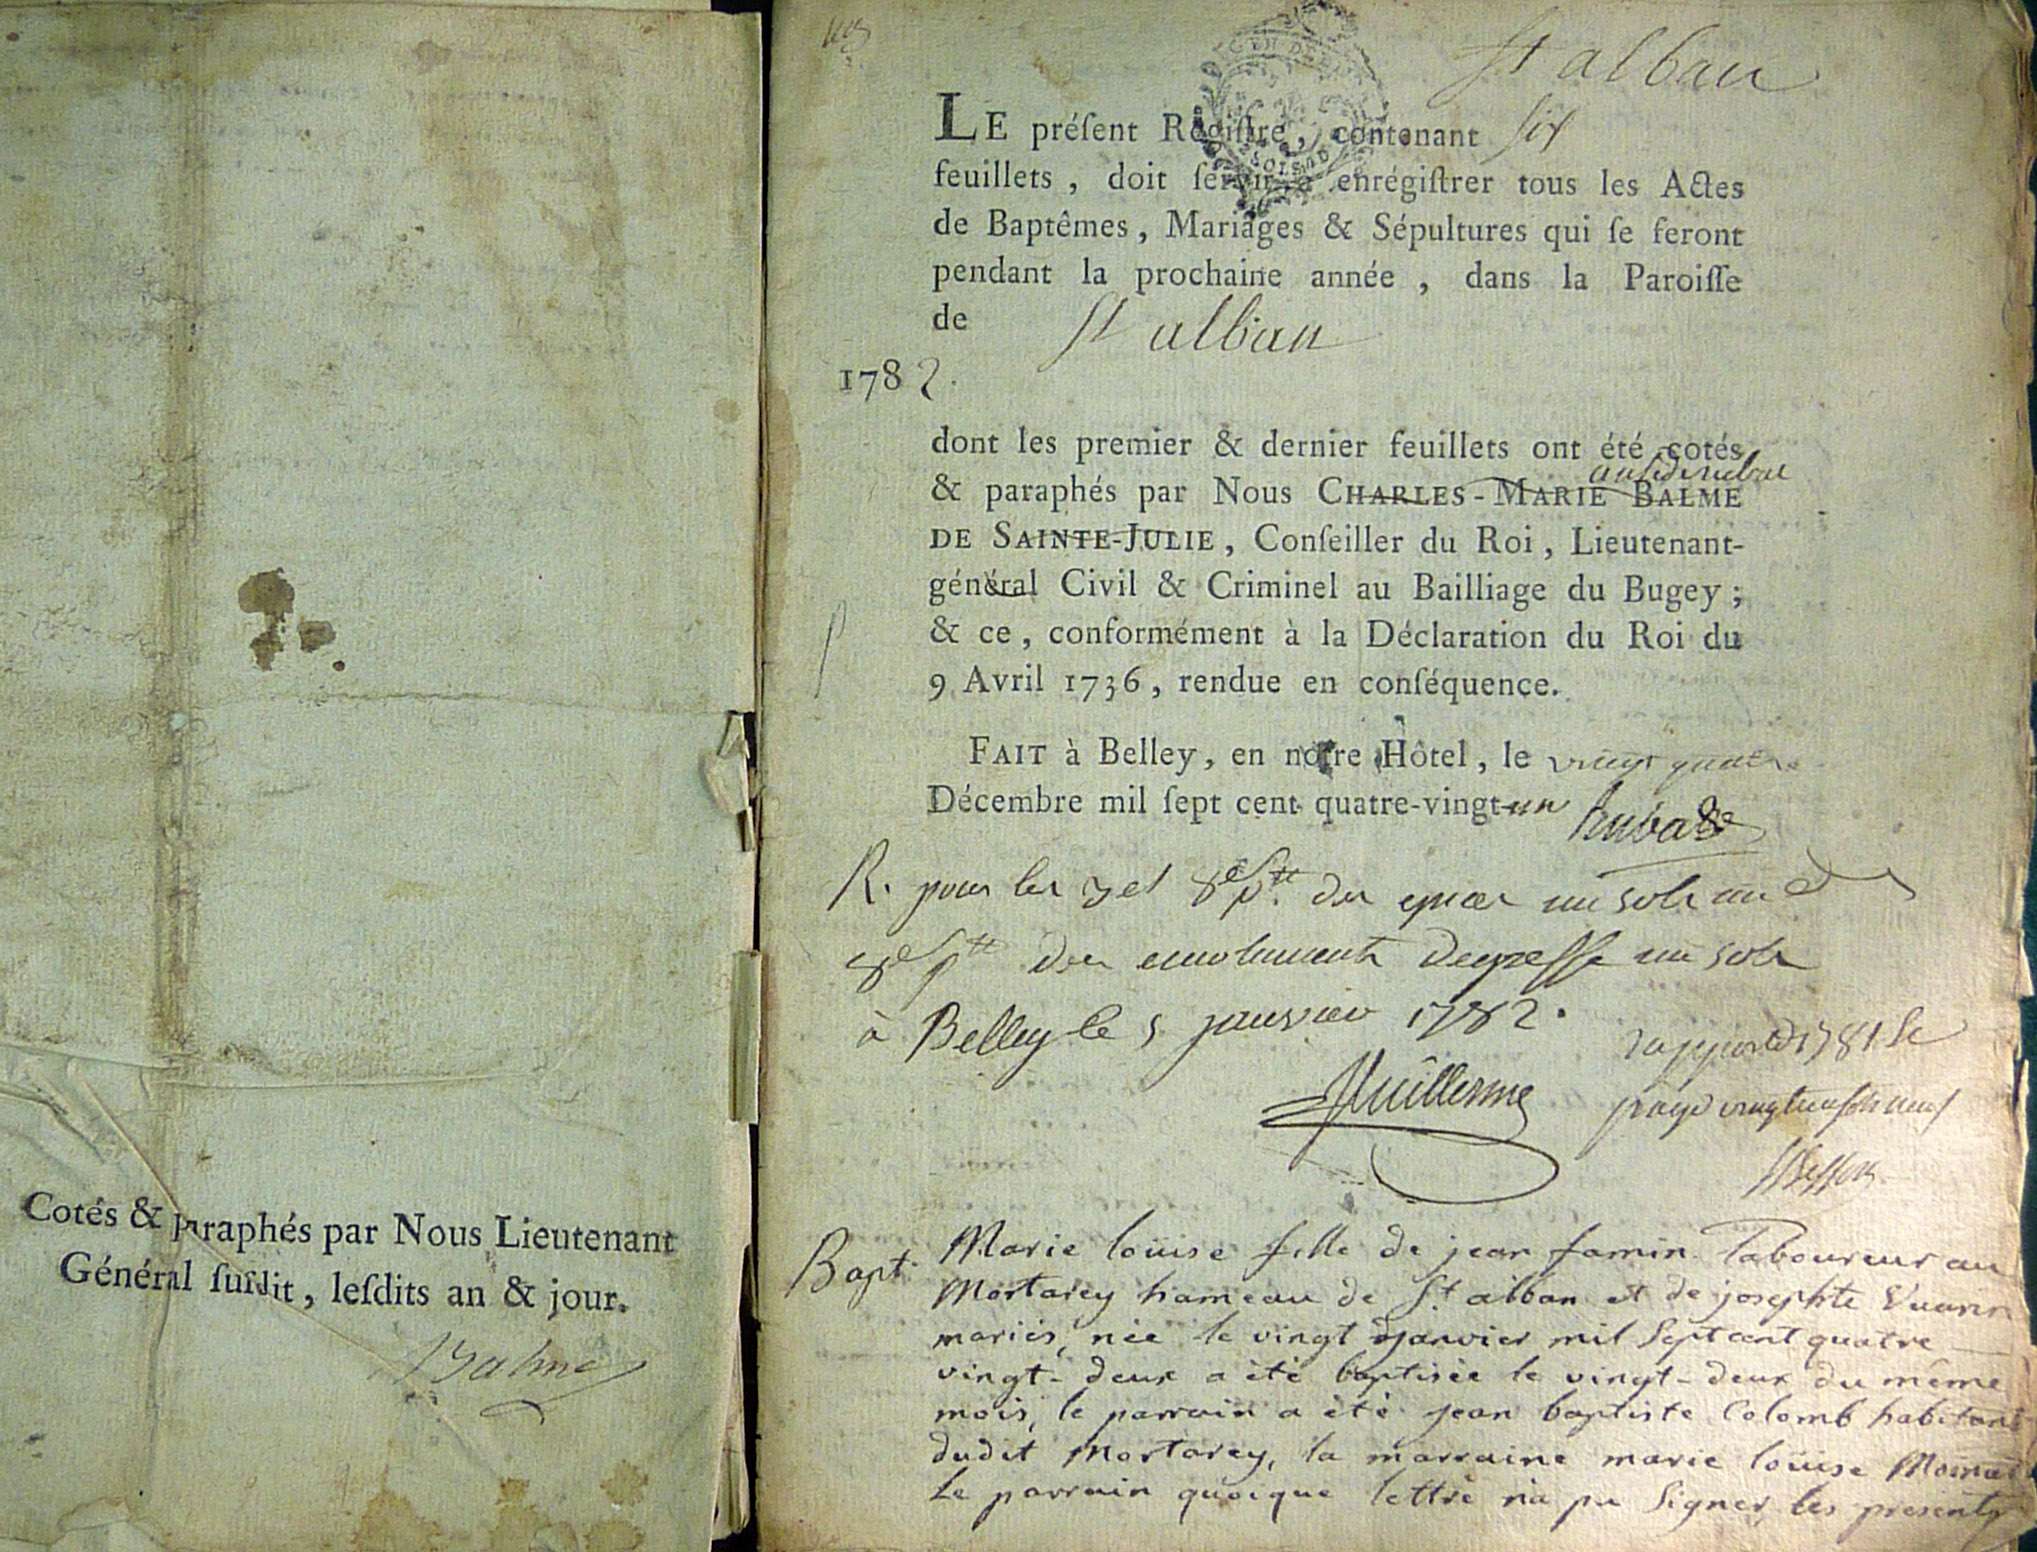 Cotés & paraphés par Nous Lieutenant
Général ſuſdit, leſdits an & jour.
Balme
St alban
LE préſent Régiſtre, contenant six
feuillets, doit ſervir à enrégiſtrer tous les Actes
de Baptêmes, Mariages & Sépultures qui ſe feront
pendant la prochaine année, dans la Paroiſſe
de St alban
1782.
dont les premier & dernier feuillets ont été cotés
& paraphés par Nous CHARLES-MARIE BALME
DE SAINTE-JULIE, Conſeiller du Roi, Lieutenant-
général Civil & Criminel au Bailliage du Bugey;
& ce, conformément à la Déclaration du Roi du
9 Avril 1736, rendue en conſéquence.
FAIT à Belley, en notre Hôtel, le vingt quatre
Décembre mil ſept cent quatre-vingt-un
R. pour les 3 et 8e un sols
8e un sols
à Belley le 5 janvier 1782.
1781
Guillerme
Bapt. Marie loüise fille de jean famin Laboureur au
Mortarey hameau de St alban et de josephte
mariés, née le vingt janvier mil Sept cent quatre
vingt-deux a été baptisée le vingt-deux du même
mois, le parrain a été jean baptiste Colomb habitant
dudit Mortarey, la marraine marie loüise
Le parrain quoique lettré n'a pu Signer, les présents